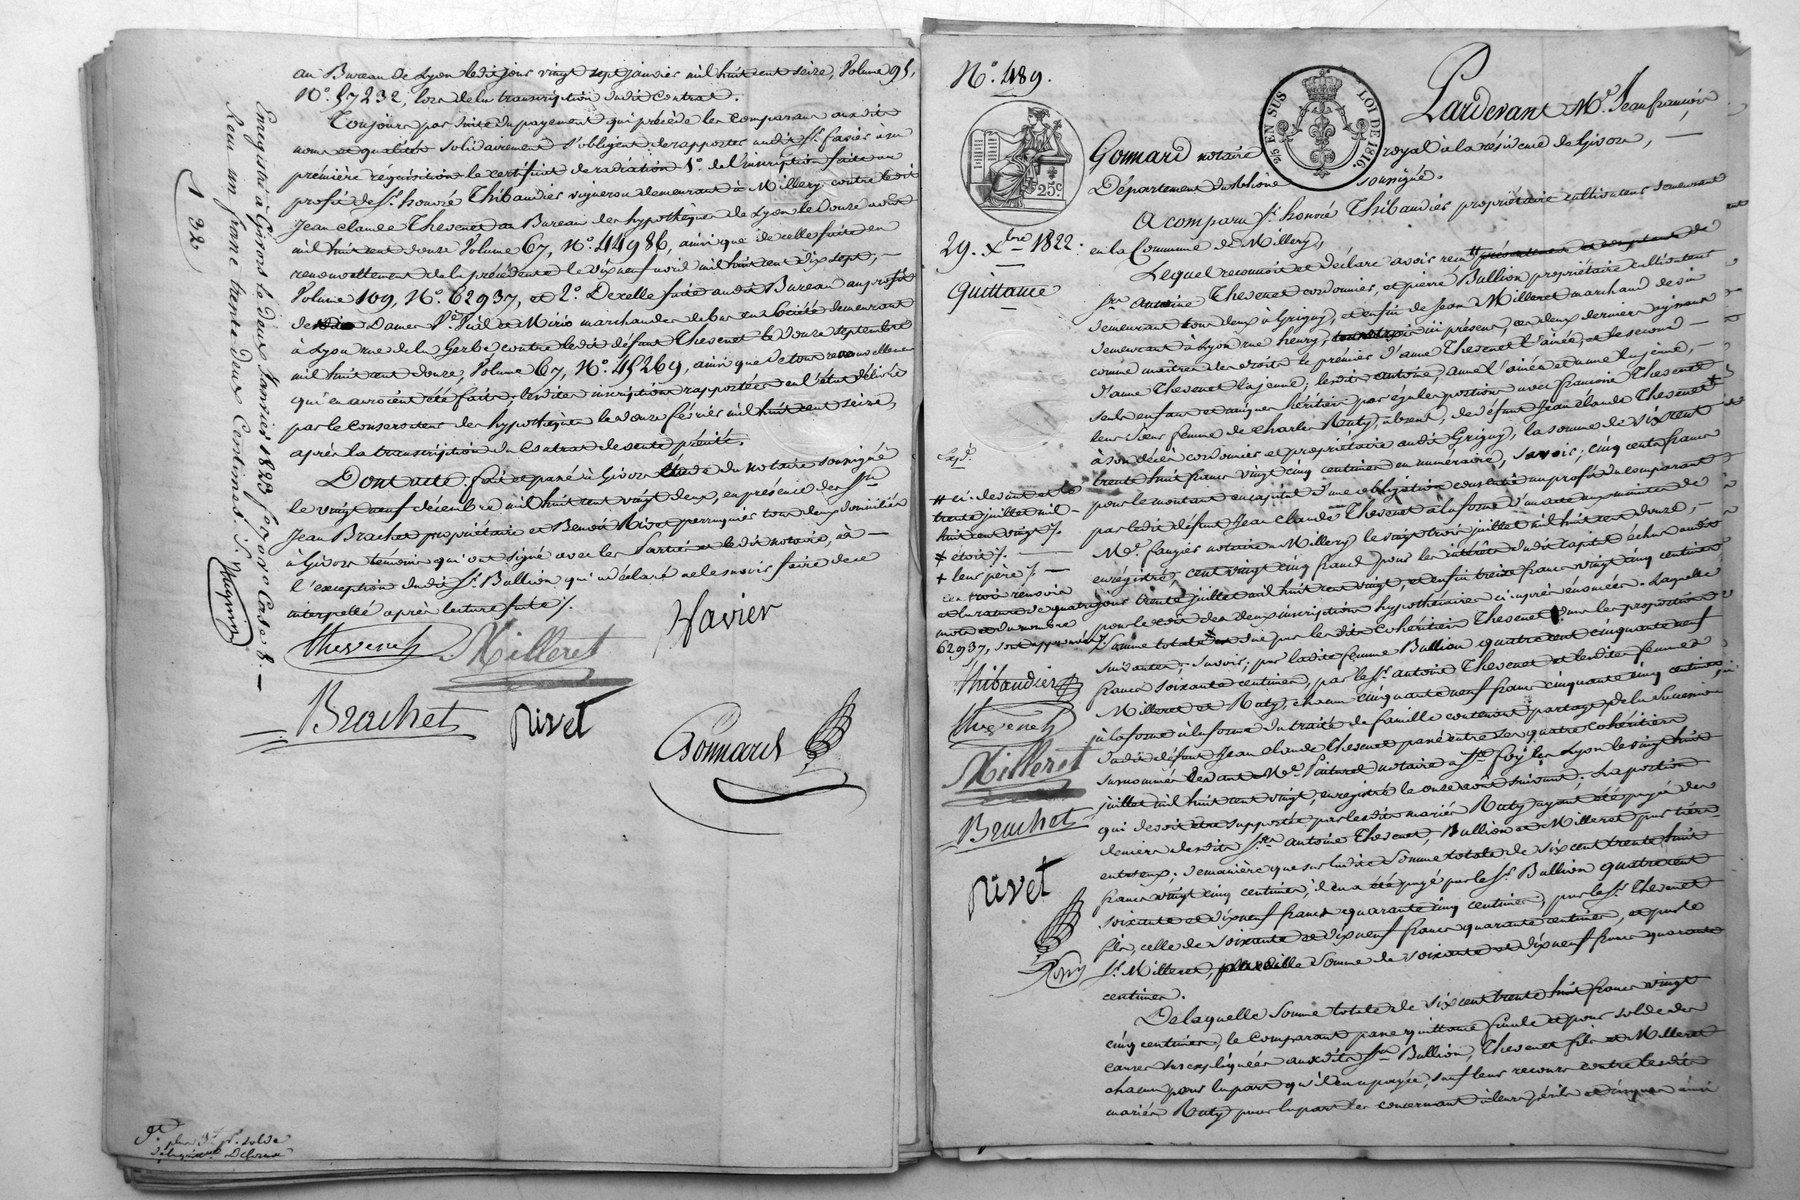 au Bureau de Lyon ledit jour vingt sept janvier mil huit cent seize, Volume 95,
N.o 57232, lors de la transcription dudit contrat.
Toujours par suite du payement qui précède les comparans auxdits
noms et qualités solidairement s'obligent de rapporter audit Sr.
première réquisition le certificat de radiation 1.o de l'inscription faite au
profit de Sr. honoré Thibaudier vigneron demeurant à Millery contre ledit
Jean claude Thevenet au Bureau des hypothèques de Lyon le douze août
mil huit cent douze Volume 67, N.o 44986, ainsi que de celle faite en
renouvellement de la précédente le dix neuf avril mil huit cent dix sept, —
Volume 109, N.o 62937, et 2.o De celle faite audit Bureau au profit
de Dames marchandes de bas en Société demeurant
à Lyon rue de la Gerbe contre ledit défunt Thevenet le douze septembre
mil huit cent douze, Volume 67, N.o 45269, ainsi que de tous renouvellemens
qui en auroient été faits; lesdites inscriptions rapportées en l'état délivré
par le conservateur des hypothèques le douze février mil huit cent seize,
après la transcription du Contrat de vente précité.
Dont acte, fait et passé à Givors Etude du notaire soussigné
le vingt neuf décembre mil huit cent vingt deux, en présence des Srs.
Jean Brachet propriétaire et Benoit Rivet perruquier tous deux domiciliés
à Givors témoins qui ont signé avec les Parties et ledit notaire, à —
l'exception dudit Sr. Bullion qui a déclaré ne le savoir faire de ce
interpellé après lecture faite /.
Thevenet Milleret
Brachet Rivet
Gonnard
Enregistré à Givors le Janvier 1823
Reçu un franc trente deux Centimes
1 32
N.o 489.
25 EN SUS LOI DE 1816.
25c
29. Xbre 1822.
Quittance
Pardevant Me. Jean françois
Gonnard notaire royal à la résidence de Givors,
Département du Rhône soussigné.
A comparu Sr. honoré Thibaudier propriétaire cultivateur demeurant
en la Commune de Millery,
Lequel reconnoit et déclare avoir reçu # présentement et comptant de
Srs. Antoine Thevenet cordonnier, et pierre Bullion propriétaire cultivateur
demeurant tous deux à Grigny, et enfin de Jean Milleret marchand de vin
demeurant à Lyon rue henry, ici présens, ces deux derniers agissans
comme maitres des droits le premier d'anne Thevenet l'ainée, et le second —
d'anne Thevenet la jeune; lesdits antoine, anne l'ainée et anne la jeune, —
seuls enfans et uniques héritiers par égales portions avec françoise Thevenet
leur soeur femme de charles Ruty, absent, de défunt Jean claude Thevenet +
à son décès cordonnier et propriétaire audit Grigny, la somme de six cent
trente huit francs vingt cinq centimes en numéraire, savoir; cinq cents francs
pour le montant en capital d'une obligation consentie au profit du comparant
par ledit défunt Jean claude Thevenet à la forme d'un acte aux minutes de
Me. fangés notaire à Millery le vingt trois juillet mil huit cent douze, —
enrégistré; cent vingt cinq francs pour les intérêts dudit capital échus audit
jour trente juillet mil huit cent vingt, et enfin treize francs vingt cinq centimes
pour le coût des deux inscriptions hypothécaires ci-après énoncées. Laquelle
somme totale est due par lesdits cohéritiers Thevenet dans les proportions
suivantes; savoir; par ladite femme Bullion quatre cent cinquante neuf
francs soixante centimes, par le Sr. antoine Thevenet et lesdites femmes
Milleret et Ruty, chacun cinquante neuf francs cinquante cinq centimes,
à la forme du traité de famille contenant partage de la succession
dudit défunt Jean claude Thevenet passé entre les quatre cohéritiers
surnommés devant Me. Paturel notaire à Ste. foy les Lyon le vingt huit
juillet mil huit cent vingt, enregistré le onze août suivant. La portion
qui devoit être supportée par lesdits mariés Ruty ayant été payée des
deniers desdits Srs. antoine Thevenet, Bullion et Milleret par tiers
entr'eux; de manière que sur ladite somme totale de six cent trente huit
francs vingt cinq centimes, il en a été payé par le Sr. Bullion quatre cent
soixante et dix neuf francs quarante cinq centimes, par le Sr. Thevenet
fils, celle de soixante et dix neuf francs quarante centimes, et par le
Sr. Milleret, pareille somme de soixante et dix neuf francs quarante
centimes.
De laquelle somme totale de six cent trente huit francs vingt
cinq centimes, le comparant passe quittance finale et pour solde des
causes sus expliquées auxdits Srs. Bullion, Thevenet fils et Milleret
chacun pour la part qu'il en a payée, sauf leur recours contre lesdits
mariés Ruty pour la part les concernant à leurs périls et risques ainsi
# ci-devant et le
trente juillet mil
huit cent vingt /.
+ leur père /. —
Ces trois renvois
et la rature de quatre
mots et du nombre
62937, sont approuvés /.
Thibaudier
Thevenet
Milleret
Brachet
Rivet